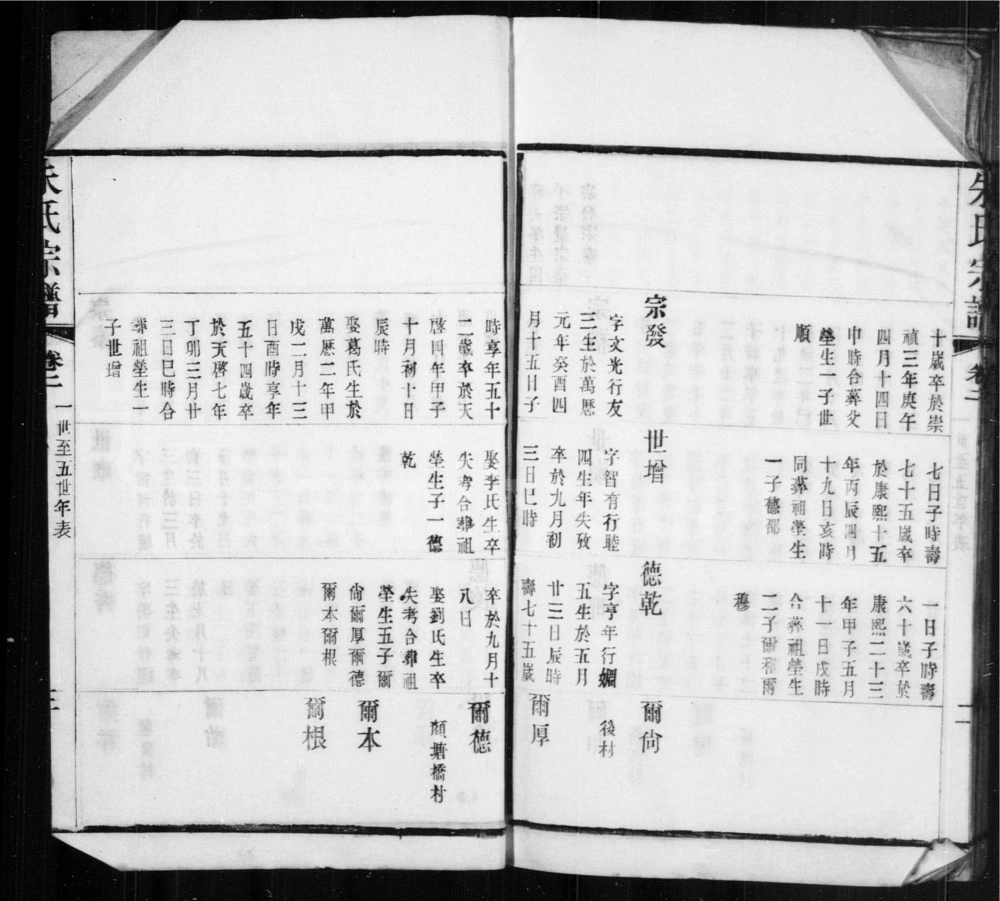 朱氏宗譜
卷二
二
十歲卒於崇
禎三年庚午
四月十四日
申時合葬父
塋生一子世
順
宗發
字文光行友
三生於萬歷
元年癸酉四
月十五日子
七日子時壽
七十五歲卒
於康熙十五
年丙辰四月
十九日亥時
同葬祖塋生
一子德邵
世增
字智有行睦
四生年失攷
卒於九月初
三日巳時
一日子時壽
六十歲卒於
康熙二十三
年甲子五月
十一日戌時
合葬祖塋生
二子爾和爾
穆
德乾
字亨年行婣
五生於五月
廿三日辰時
壽七十五歲
爾尙
後村
爾厚
時享年五十
二歲卒於天
啓四年甲子
十月初十日
辰時
娶葛氏生於
萬歷二年甲
戌二月十三
日酉時享年
五十四歲卒
於天啓七年
丁卯三月廿
三日巳時合
葬祖塋生一
子世增
娶李氏生卒
失考合葬祖
塋生子一德
乾
卒於九月十
八日
娶劉氏生卒
失考合葬祖
塋生五子爾
尙爾厚爾德
爾本爾根
爾德
顏塘橋村
爾本
爾根
朱氏宗譜
卷二
一世至五世年表